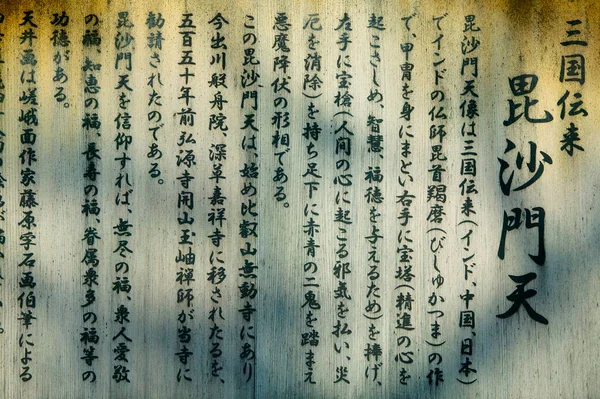 三国伝来
毘沙門天
毘沙門天像は三国伝来(インド、中国、日本)
でインドの仏師毘首羯磨(びしゅかつま)の作
で、甲冑を身にまとい右手に宝塔(精進の心を
起こさしめ、智慧、福徳を与えるため)を捧げ、
左手に宝槍(人間の心に起こる邪気を払い、災
厄を消除)を持ち足下に赤青の二鬼を踏まえ
悪魔降伏の形相である。
この毘沙門天は、始め比叡山無動寺にあり
今出川般舟院、深草嘉祥寺に移されたるを、
五百五十年前弘源寺開山玉岫禅師が当寺に
勧請されたのである。
毘沙門天を信仰すれば、無尽の福、衆人愛敬
の福、知恵の福、長寿の福、眷属衆多の福等の
功徳がある。
天井画は嵯峨面作家藤原孚石画伯筆による